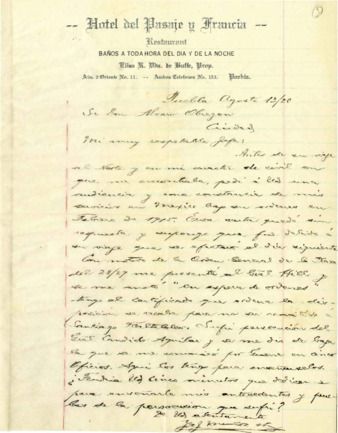 Hotel del Pasaje y Francia
Restaurant
BAÑOS A TODA HORA DEL DIA Y DE LA NOCHE
Elisa R. Vda. de Buffe, Prop.
Puebla.
Puebla Agosto 12/20
Sr Don Alvaro Obregon
Ciudad
Mi muy respetable Jefe:
Antes de su viaje
al Norte y en mi carácter de civil en
que me encontraba, pedí á Ud una
audiencia y una constancia de mis
servicios en Mexico bajo sus ordenes en
Febrero de 1915. Esa carta quedó sin
respuesta y supongo que fué debido á
su viaje que se efectuó al día siguiente
Con motivo de la Orden General de la Plaza
del 26/27 me presenté al Gral Hill y
se me anotó "en espera de ordenes"
Tengo el certificado que ordena la dis-
posición se recabe para no ser
Santiago Tlaltelolco. Sufrí persecución del
Gral Candido Aguilar y se me dio de baja
la que se me comunicó por
Oficios. Aqui los tengo para enseñarselos.
¿Tendría Ud cinco minutos que dedicar
para enseñarle mis antecedentes y prue-
bas de la persecucion que sufrí?
De Ud atentamente